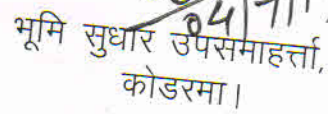 04/11
भूमि सुधार उपसमाहर्त्ता,
कोडरमा।